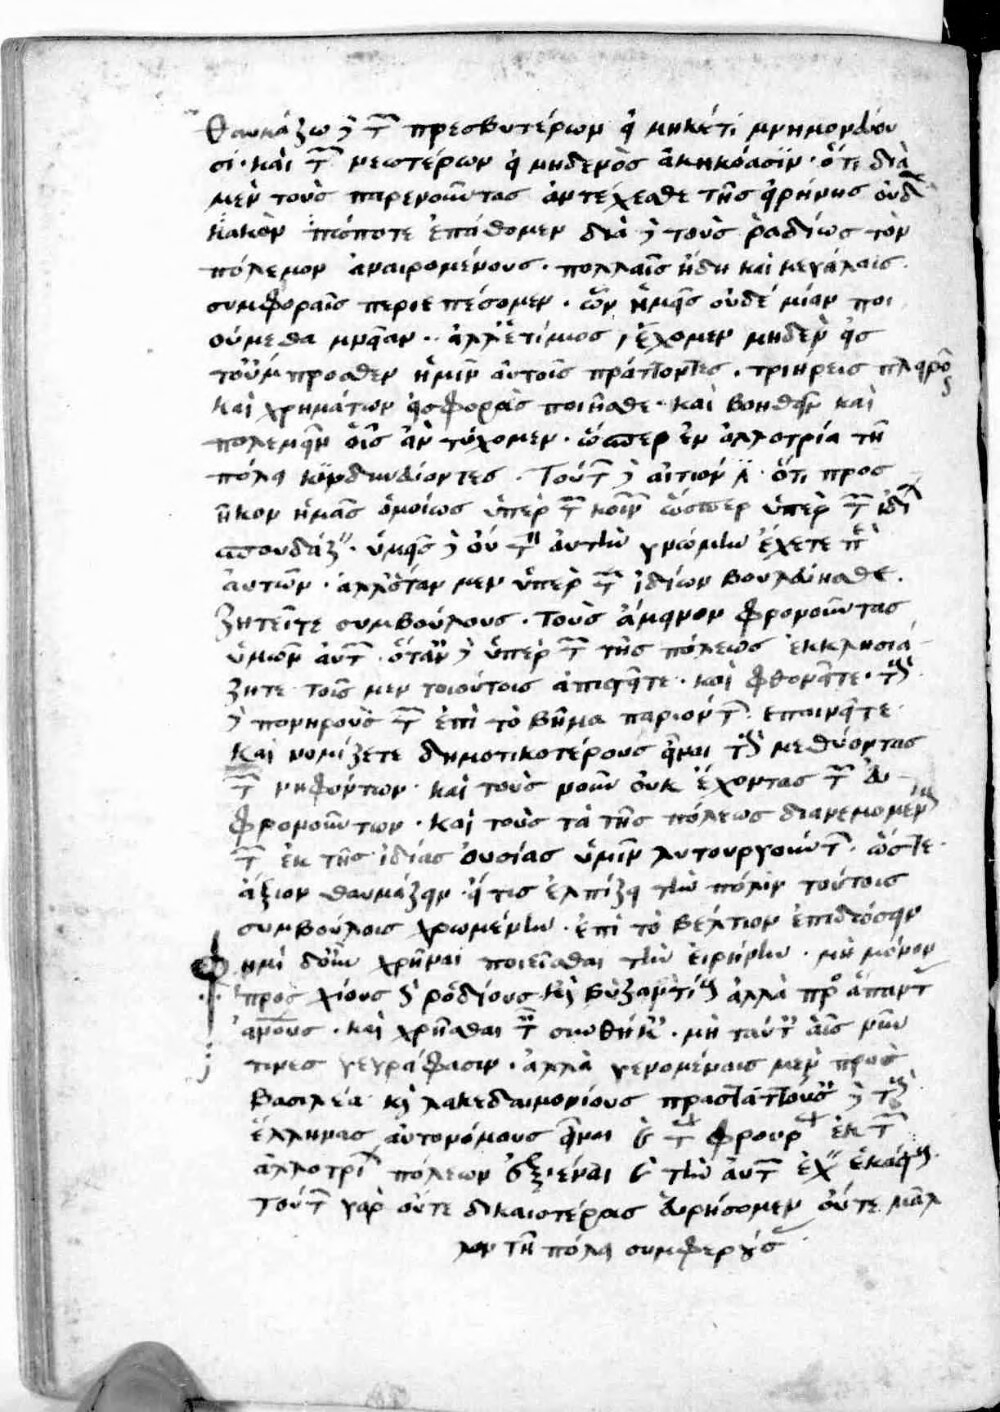 Θαυμάζω δὲ τῶν πρεσβυτέρων εἰ μηκέτι μνημονεύου
σι· καὶ τῶν νεωτέρων εἰ μηδενὸς ἀκηκόασϊν· ὅτι διὰ
μὲν τοὺς παρενοῦντας ἀντέχεσθε τῆς εἰρήνης οὐδὲν
κακὸν πόποτε ἐπάθομεν διὰ δὲ τοὺς ῥαδίως τὸν
πόλεμον ἀναιρομένους· πολλαῖς ἤδη καὶ μεγάλαις·
συμφοραῖς περιεπέσομεν· ὧν ἡμεῖς οὐδέ μίαν ποι
ούμεθα μνείαν·· ἀλλἑτίμως ἔχομεν μηδὲν εἰς
τοὔμπροσθεν ἡμῖν αὐτοῖς πράττοντες· τριήρεις πληροῦν
καὶ χρημάτων εἰσφορὰς ποιῆσθε· καὶ βοηθεῖν καὶ
πολεμεῖν οἷς ἀν τύχομεν· ὥσπερ ἐν ἀλλοτρία τῆ
πόλει κϊνδυνεύοντες· Τούτων δὲ αἴτιόν ἐστιν· ὅτι προς
ῆκον ἡμᾶς ὁμοίως ὑπὲρ τῶν κοινῶν ὥσπερ ὑπὲρ τῶν ἰδίων
σπουδάζειν· ὑμεῖς δὲ οὐ τὴν αυτὴν γνώμην ἔχετε περὶ
αυτῶν· ἀλλ᾽ὅταν μεν ὑπὲρ τῶν ἰδίων βουλεύησθε·
ζητεῖτε συμβούλους· τοὺς ἄμεινον φρονοῦντας
ὑμῶν αὐτῶν· ὅταν δὲ ὑπὲρ τῶν τῆς πόλεως ἐκκλησιά
ζητε τοῖς μεν τοιούτοις ἀπιστεῖτε· καὶ φθονεῖτε· τοὺς
δὲ πονηροὺς τῶν ἐπὶ τὸ βῆμα παριόντων· επαινεῖτε·
καὶ νομίζετε δημοτικοτέρους εἶναι τοὺς μεθύοντας
τῶν νηφόντων· καὶ τοὺς νοῦν οὐκ ἔχοντας τῶν εὖ
φρονούντων· καὶ τοὺς τὰ τῆς πόλεως διανεμομένους
τῶν ἐκ τῆς ἰδίας ουσίας ὑμῖν λυτουργούντων· ὥστε·
ἄξιον θαυμάζειν· εἴ τις ἐλπίζει τὴν πόλιν τούτοις
συμβούλοις χρωμένην· ἐπὶ τὸ βέλτιον ἐπιδιόσειν
ημὶ δ᾽οὖν χρῆναι ποιεῖσθαι τὴν εἰρήνην· μὴ μόνον
πρὸς χίους καὶ ῥοδίους καὶ βυζαντίους ἀλλὰ πρὸς ἅπαντας
ἀνθρώπους· καὶ χρῆσθαι τῶν συνθήκων· μὴ ταύταις αἷς νῦν
τινες γεγράφασιν· ἀλλὰ γενομέναις μεν προς
βασιλέα καὶ λακεδαιμονίους προσταττούσαις δὲ τοὺς
ἕλληνας αὐτονόμους εἶναι καὶ τὰς φρουρὰς ἐκ τῶν
ἀλλοτρίων πόλεων ἐξιέναι καὶ τὴν αὐτῶν ἔχειν ἑκάστους·
τούτων γὰρ οὔτε δικαιοτέρας εὑρήσομεν οὔτε μᾶλ
λον τῆ πόλει συμφερούσας·